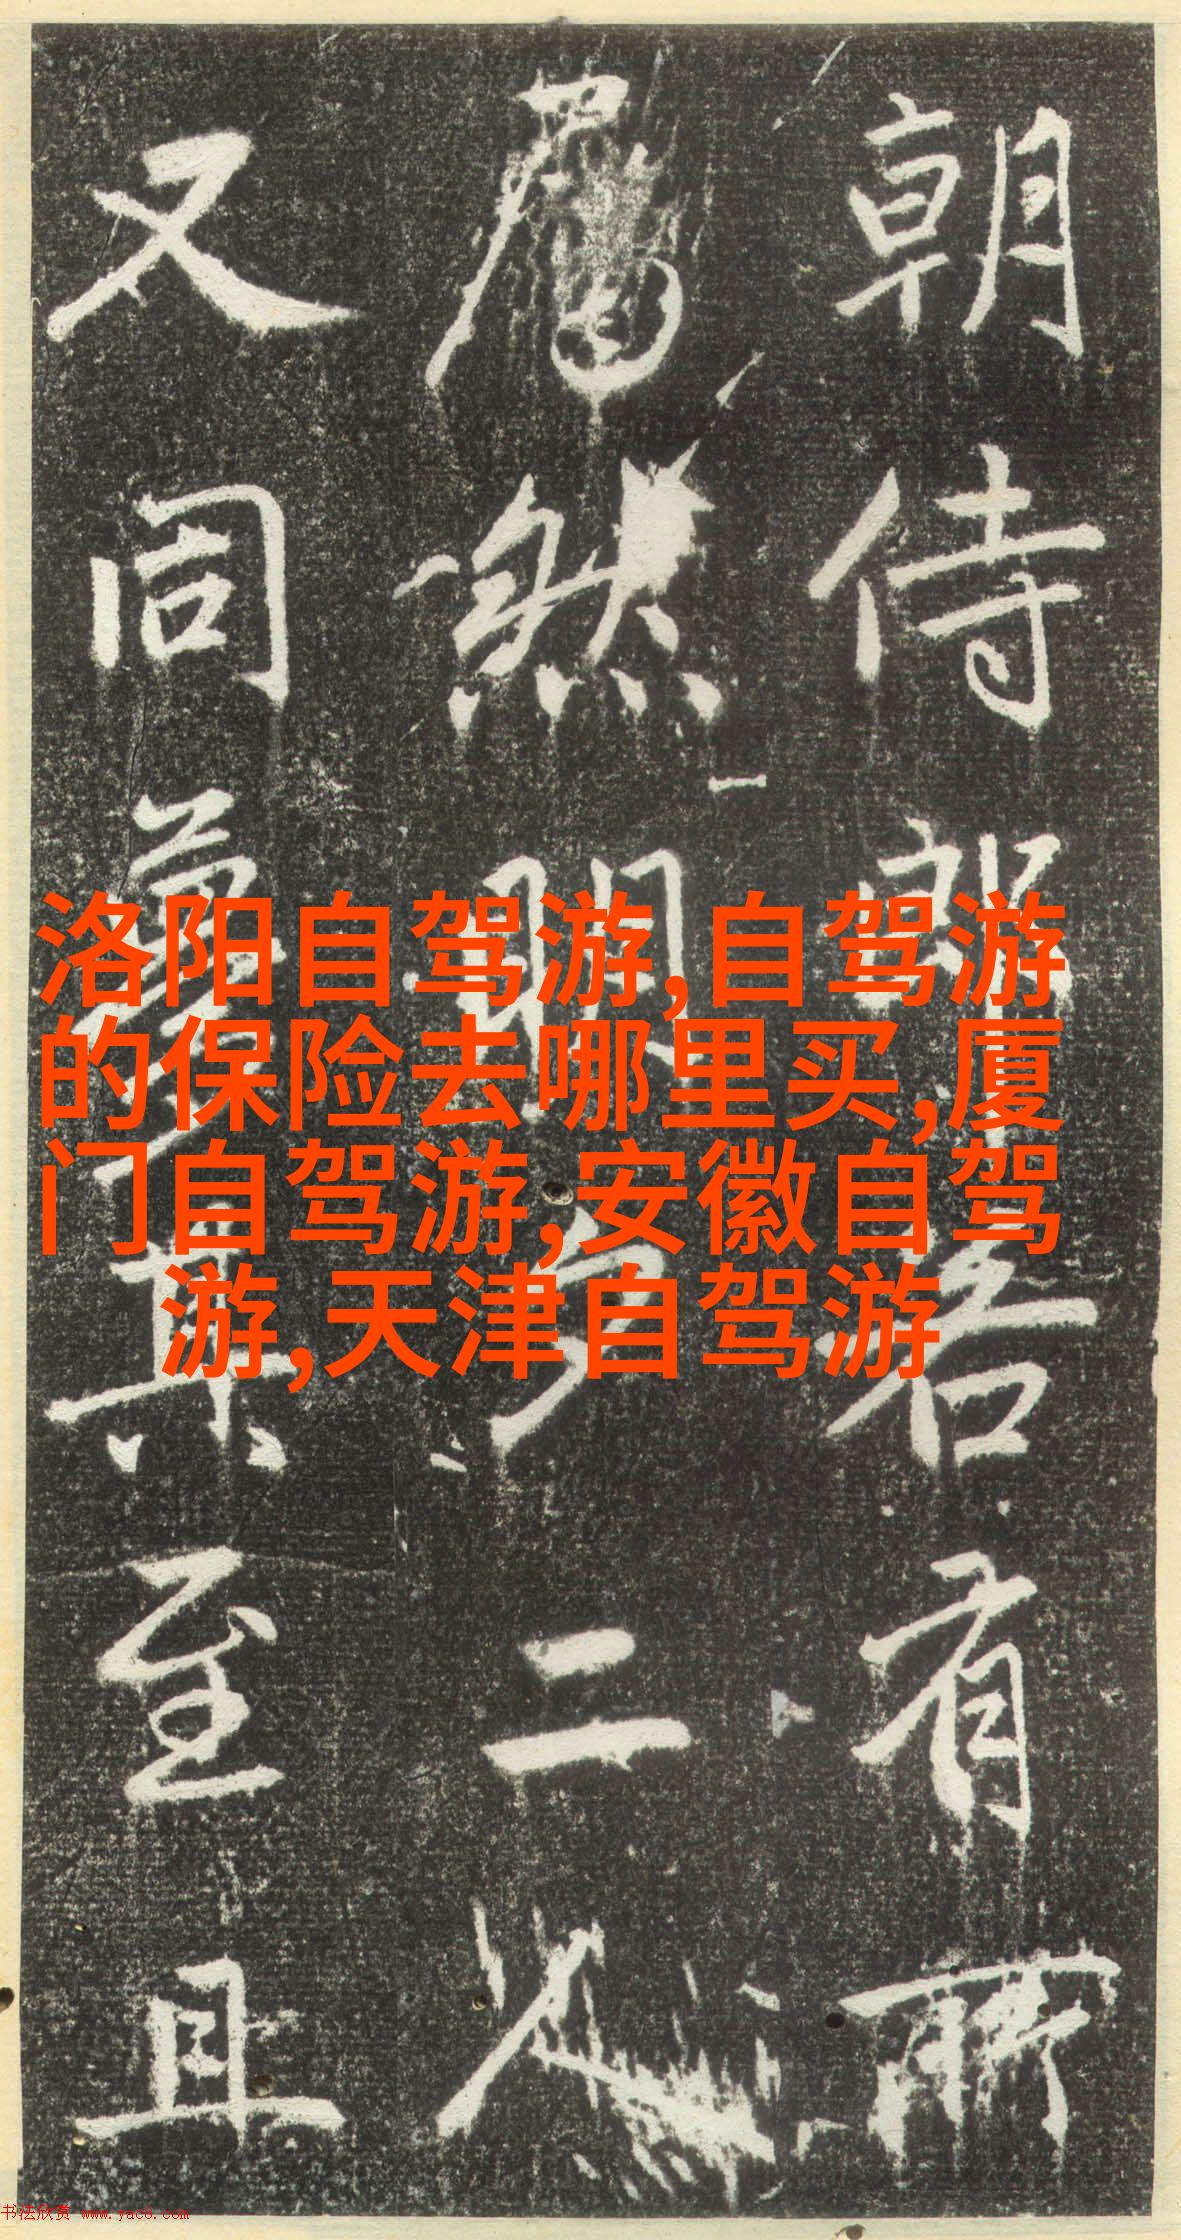 朝侍郎若有所
屬然明多二人
又同彝其至且
洛阳自驾游,自驾游
的保险去哪里买,厦
门自驾游,安徽自驾
游,天津自驾游
书法欣赏 www.yac8.com